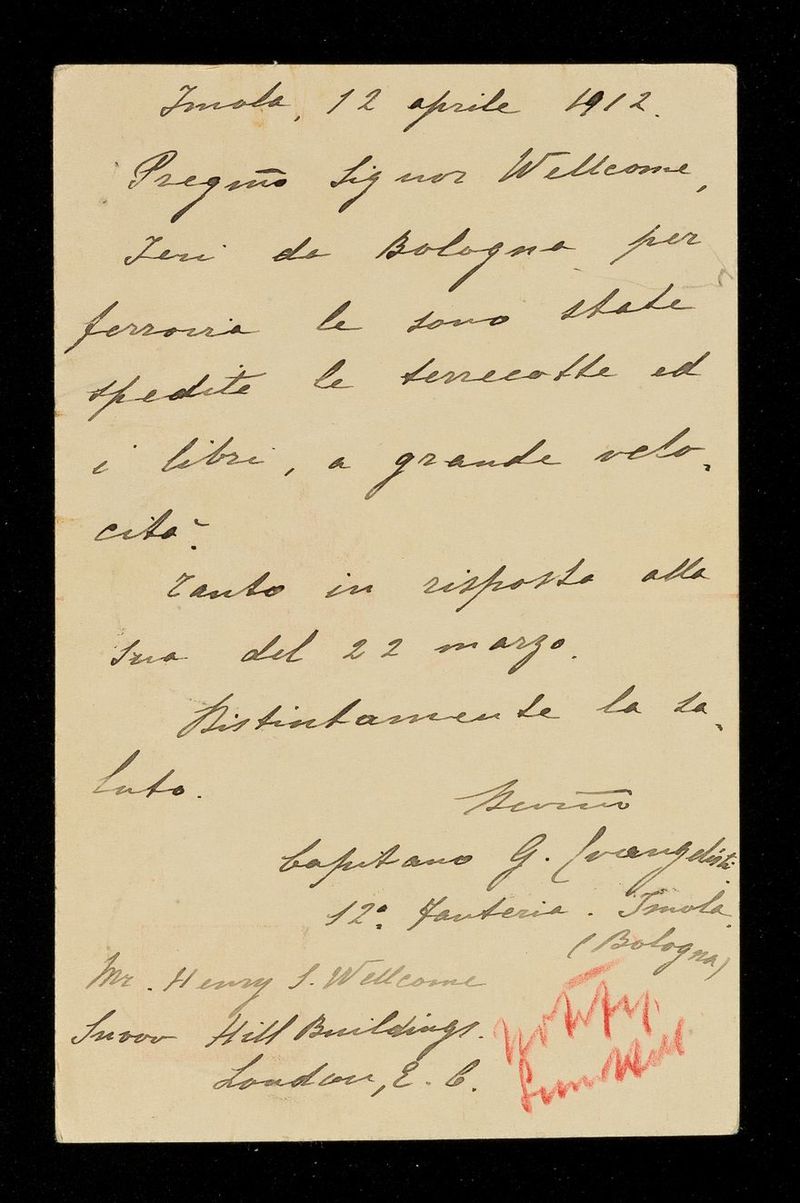 Imola, 12 aprile 1912.
Pregmo Signor Wellcome,
Ieri da Bologna per
ferrovia le sono state
spedite le terrecotte ed
i libri, a grande velo-
cità.
Tanto in risposta alla
Sua del 22 marzo.
Distintamente la sa-
luto.
Devmo
Capitano G. Evangelisti
12° Fanteria. Imola.
(Bologna)
Mr. Henry S. Wellcome
Snow Hill Buildings.
London, E. C.
Notify